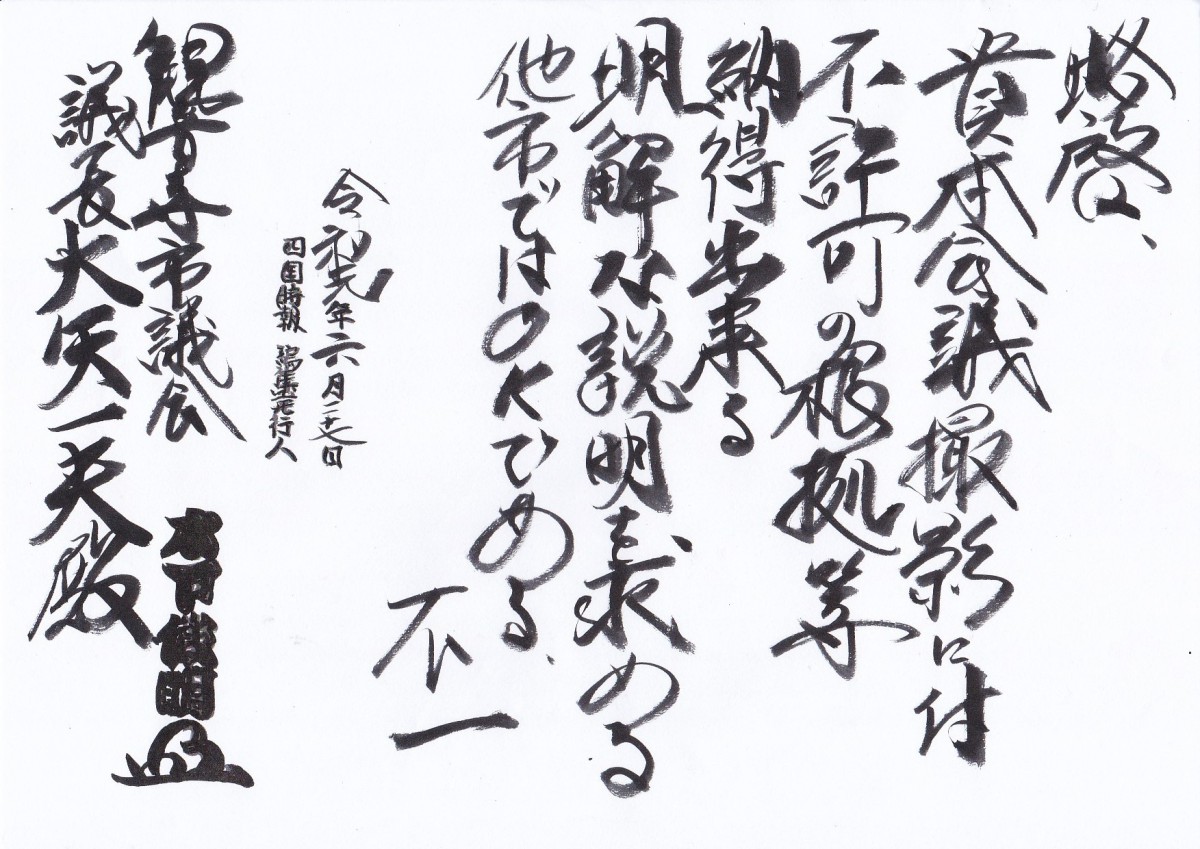 略啓、
貴本会議撮影に付
不許可の根拠等
納得出来る
明解な説明を求める
他市では
める、
不一
令和元年六月二十七日
四国時報 編集発行人
観音寺市議会
議長大矢一夫殿